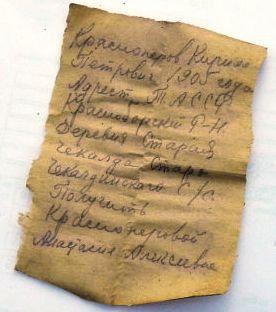 Красноперов Кирилл
Петрович 1905 года
Адрест Т.АССР
Красноборский Р-Н
Деревня Старая
Чекалда Старо
Чекалдинского С/С.
Получить
Красноперовой
Анастасие Алексевне